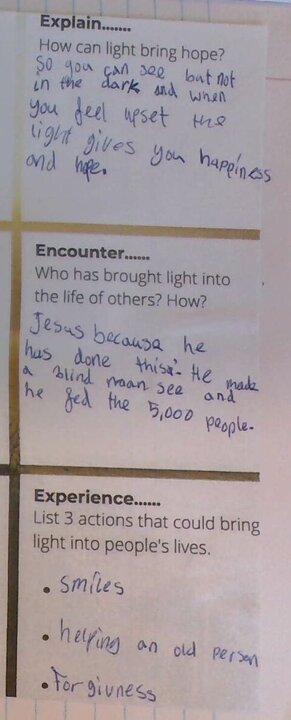 Explain.......
How can light bring hope?
So you can see but not
in the dark and when
you feel upset the
light gives you happiness
and hope.
Encounter......
Who has brought light into
the life of others? How?
Jesus because he
has done this: He made
a blind maan see and
he fed the 5,000 people.
Experience......
List 3 actions that could bring
light into people's lives.
• smiles
• helping an old person
• Forgivness